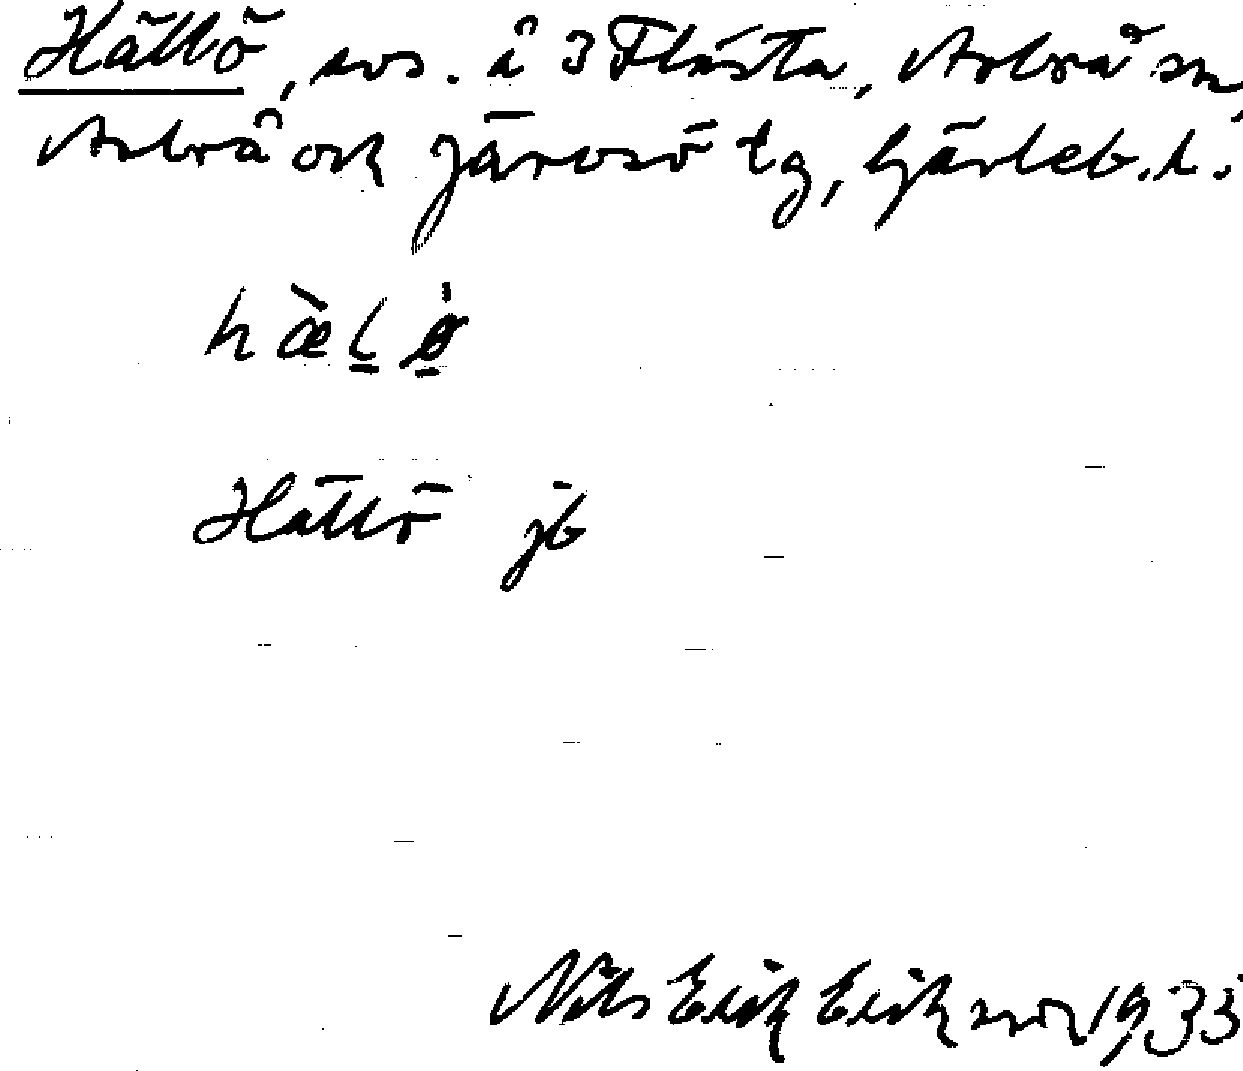 Hällö, avs. å 3 Flästa, Arbrå sn,
Arbrå och Järvsö tg, Gävleb. l.
hæ̀lø̀
Hällö jb
Nils Erik Erikson 1933